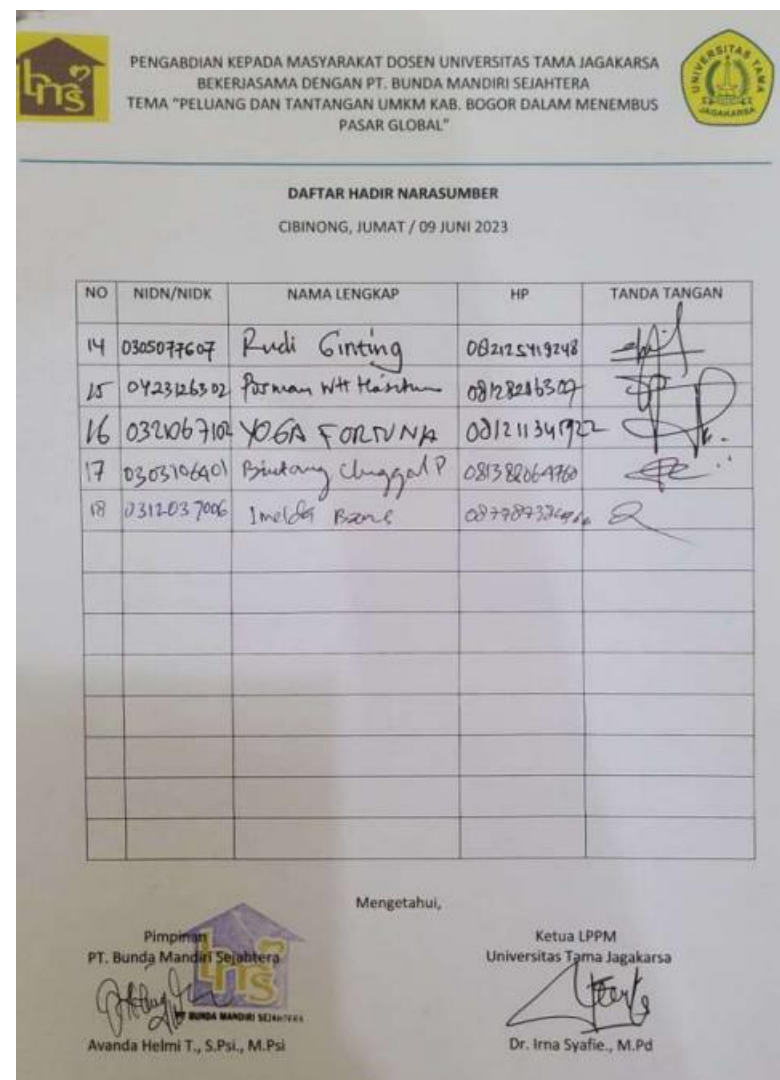 bms
PENGABDIAN KEPADA MASYARAKAT DOSEN UNIVERSITAS TAMA JAGAKARSA
BEKERJASAMA DENGAN PT. BUNDA MANDIRI SEJAHTERA
TEMA "PELUANG DAN TANTANGAN UMKM KAB. BOGOR DALAM MENEMBUS
PASAR GLOBAL"
UNIVERSITAS TAMA
JAGAKARSA
DAFTAR HADIR NARASUMBER
CIBINONG, JUMAT / 09 JUNI 2023
NO NIDN/NIDK NAMA LENGKAP HP TANDA TANGAN
14 0305077607 Rudi Ginting 082125419248
15 0423126302 Posman WH
16 0321067102 YOGA FORTUNA
17 0303106401 Bintang 081382064760
18 0312037006 Imelda
Mengetahui,
Pimpinan
PT. Bunda Mandiri Sejahtera
bms
PT BUNDA MANDIRI SEJAHTERA
Avanda Helmi T., S.Psi., M.Psi
Ketua LPPM
Universitas Tama Jagakarsa
Dr. Irna Syafie., M.Pd